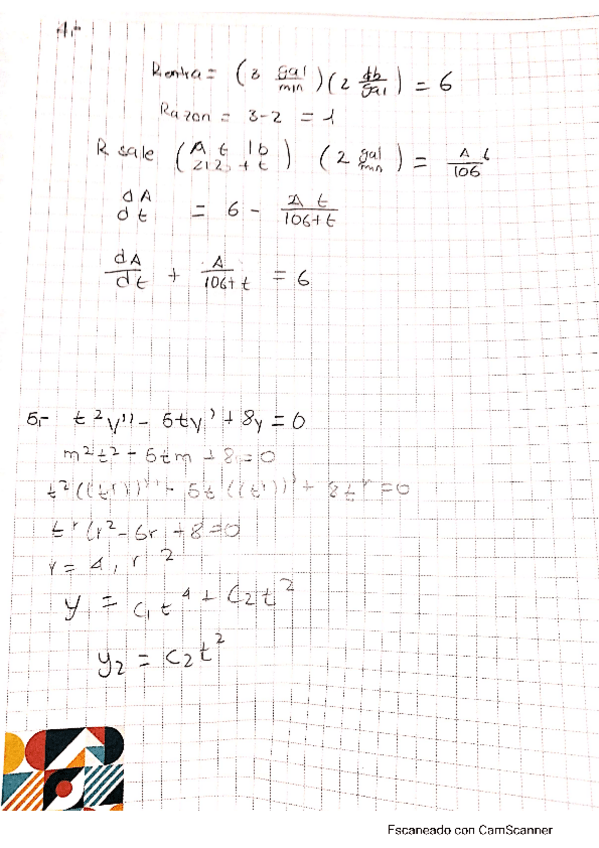 4.-
Rentra = (3 gal/min)(2 lb/gal) = 6
Razon = 3-2 = 1
R sale (A t lb / 212 + t) (2 gal/min) = A t/106
dA/dt = 6 - 2A t/106+t
dA/dt + A/106+t = 6
5.- t²y'' - 5ty' + 8y = 0
m²t² - 5tm + 8 = 0
t²((tʳ))'' - 5t((tʳ))' + 8tʳ = 0
tʳ(r² - 6r + 8 = 0
r = 4, r 2
y = C₁t⁴ + C₂t²
y₂ = C₂t²
Escaneado con CamScanner